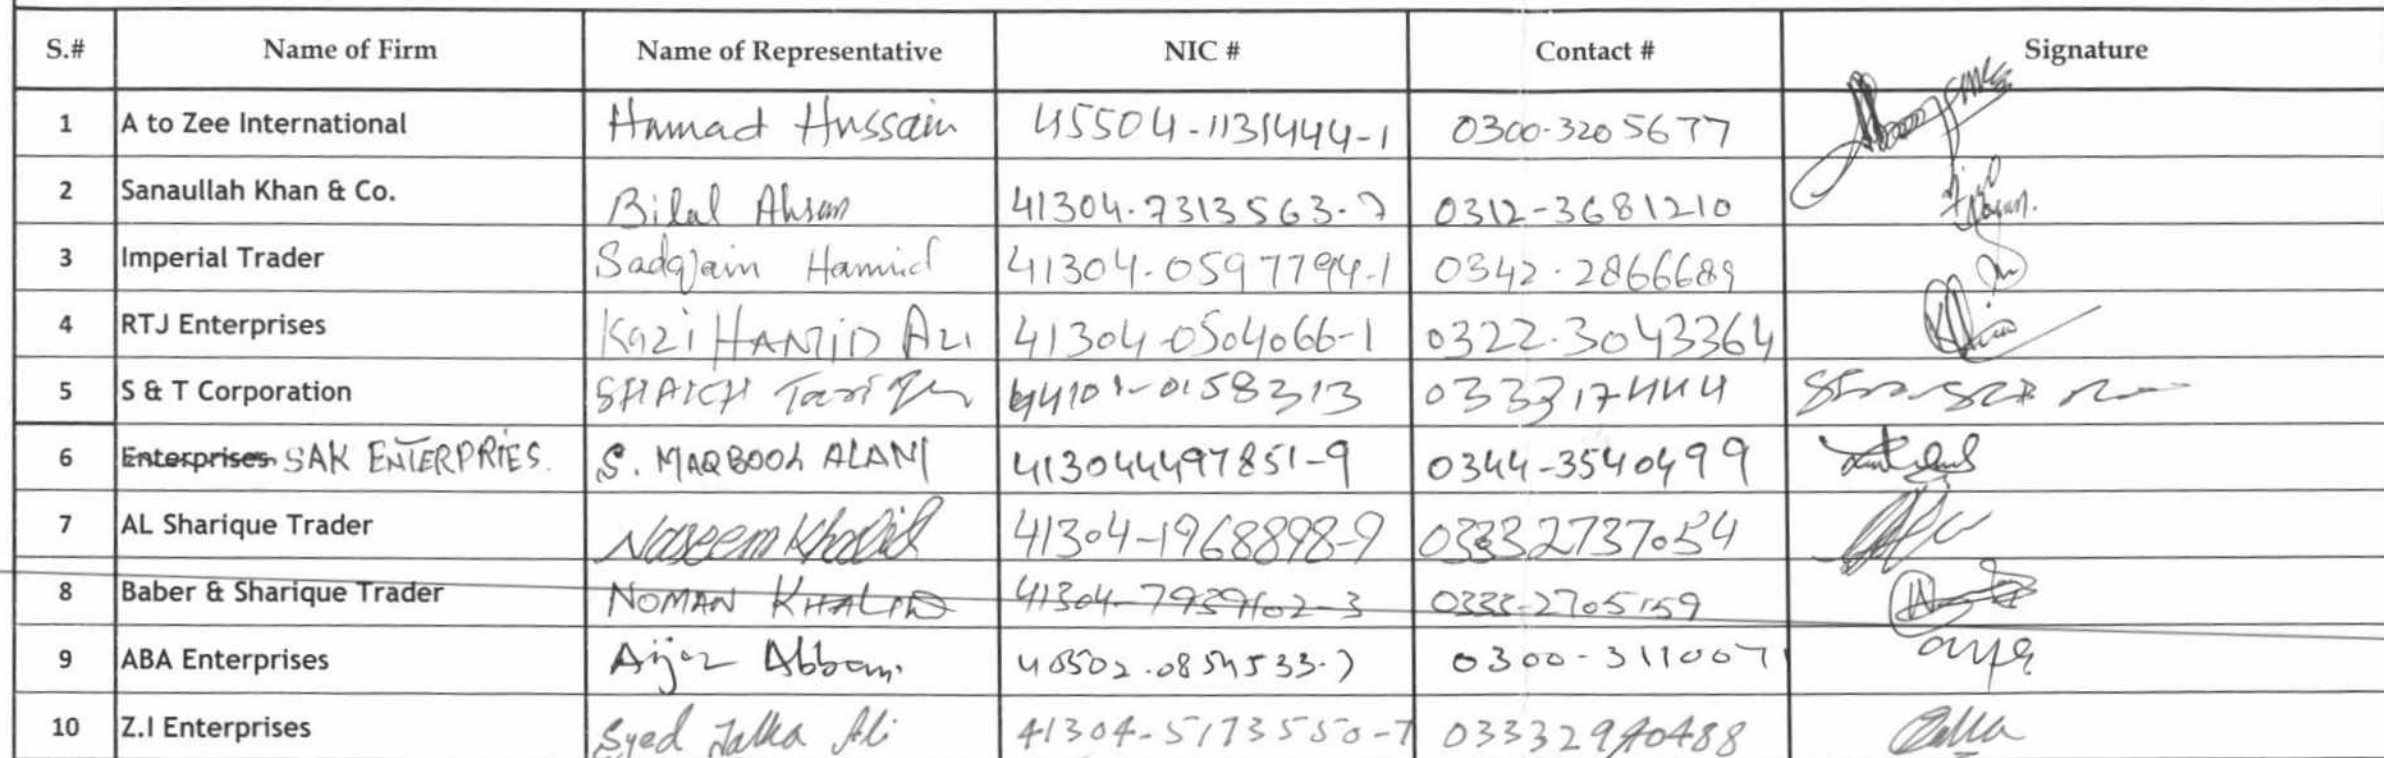 S.# Name of Firm Name of Representative NIC # Contact # Signature
1 A to Zee International Hammad Hussain 45504-1131444-1 0300-3205677
2 Sanaullah Khan & Co. Bilal Ahsan 41304-7313563-7 0312-3681210
3 Imperial Trader Sadqain Hamid 41304-0597794-1 0342-2866689
4 RTJ Enterprises Kazi HAMID ALI 41304-0504066-1 0322-3043364
5 S & T Corporation SHAIKH Tariq 0333317444
6 Enterprises SAK ENTERPRIES. S. MAQBOOL ALAM 413044497851-9 0344-3540499
7 AL Sharique Trader Naseem Khalid 41304-1968898-9 03332737054
8 Baber & Sharique Trader NOMAN KHALID 0333-2705159
9 ABA Enterprises Aijaz Abbasi 0300-3110071
10 Z.I Enterprises Syed Ali 41304-5173550-7